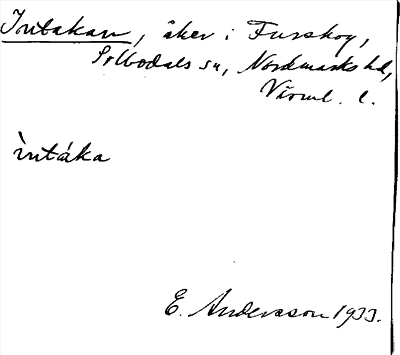 Intakan, åker i Furskog,
Silbodals sn, Nordmarks hd,
Värml. l.
ìntáka
E. Andersson 1933.